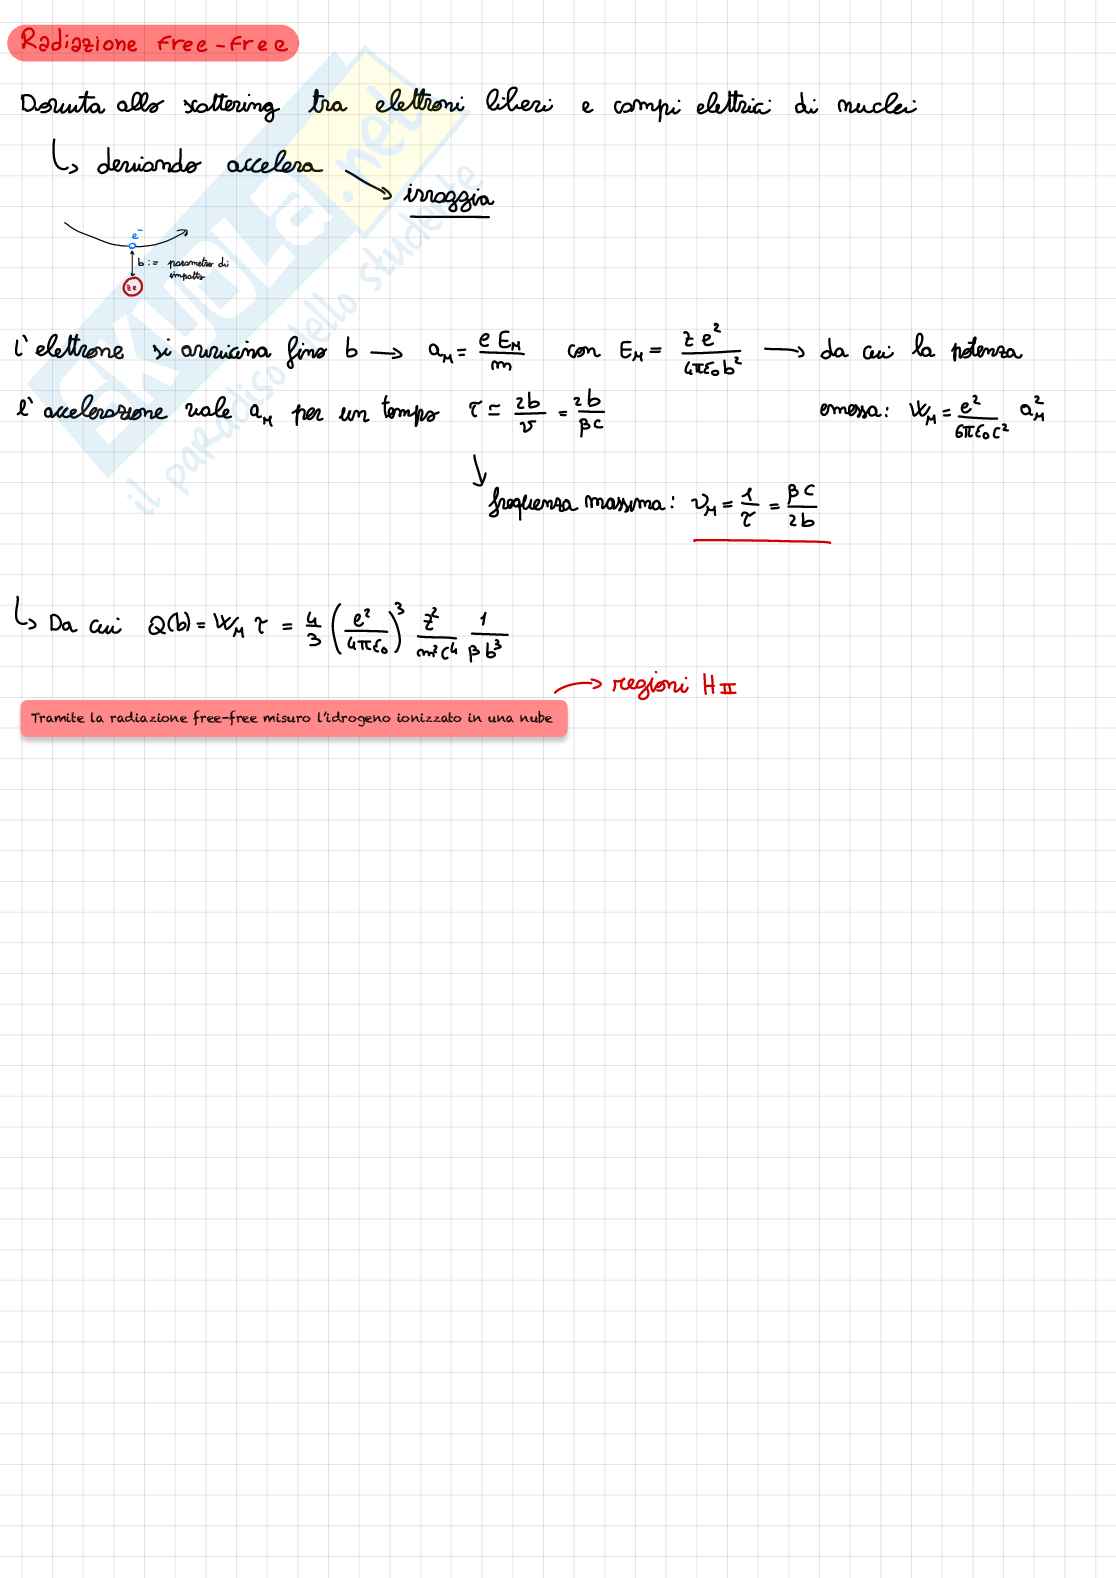 Radiazione free-free
Dovuta allo scattering tra elettroni liberi e campi elettrici di nuclei
↳ deviando accelera
→ irraggia
e⁻
b := parametro di
impatto
Ze
L'elettrone si avvicina fino b → a_M = e E_M / m con E_M = Z e² / 4πε₀b² → da cui la potenza
l'accelerazione vale a_M per un tempo τ ≃ 2b / v = 2b / βc emessa: W_M = e² / 6πε₀c² a_M²
frequenza massima: ν_M = 1 / τ = βc / 2b
↳ Da cui Q(b) = W_M τ = 4/3 (e² / 4πε₀)³ Z² / m²c⁴ 1 / βb³
→ regioni HII
Tramite la radiazione free-free misuro l'idrogeno ionizzato in una nube
SKUOLA.net
il paradiso dello studente